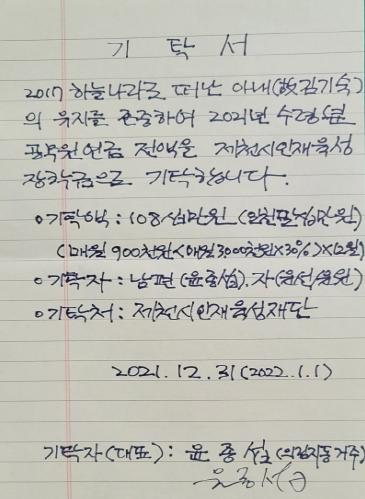 기 탁 서
2017 하늘나라로 떠난 아내(故김기숙)
의 유지를 존중하여 2021년 수령한
공무원연금 전액을 제천시인재육성
장학금으로 기탁합니다.
○기탁액 : 108십만원 (일천팔십만원)
(매월 900천원<매월3000천원×30%)×12월)
○기탁자 : 남편 (윤종섭). 자(윤선 원)
○기탁처 : 제천시인재육성재단
2021. 12. 31 (2022. 1. 1)
기탁자(대표) : 윤 종 섭 (의림지동 거주)
윤종섭